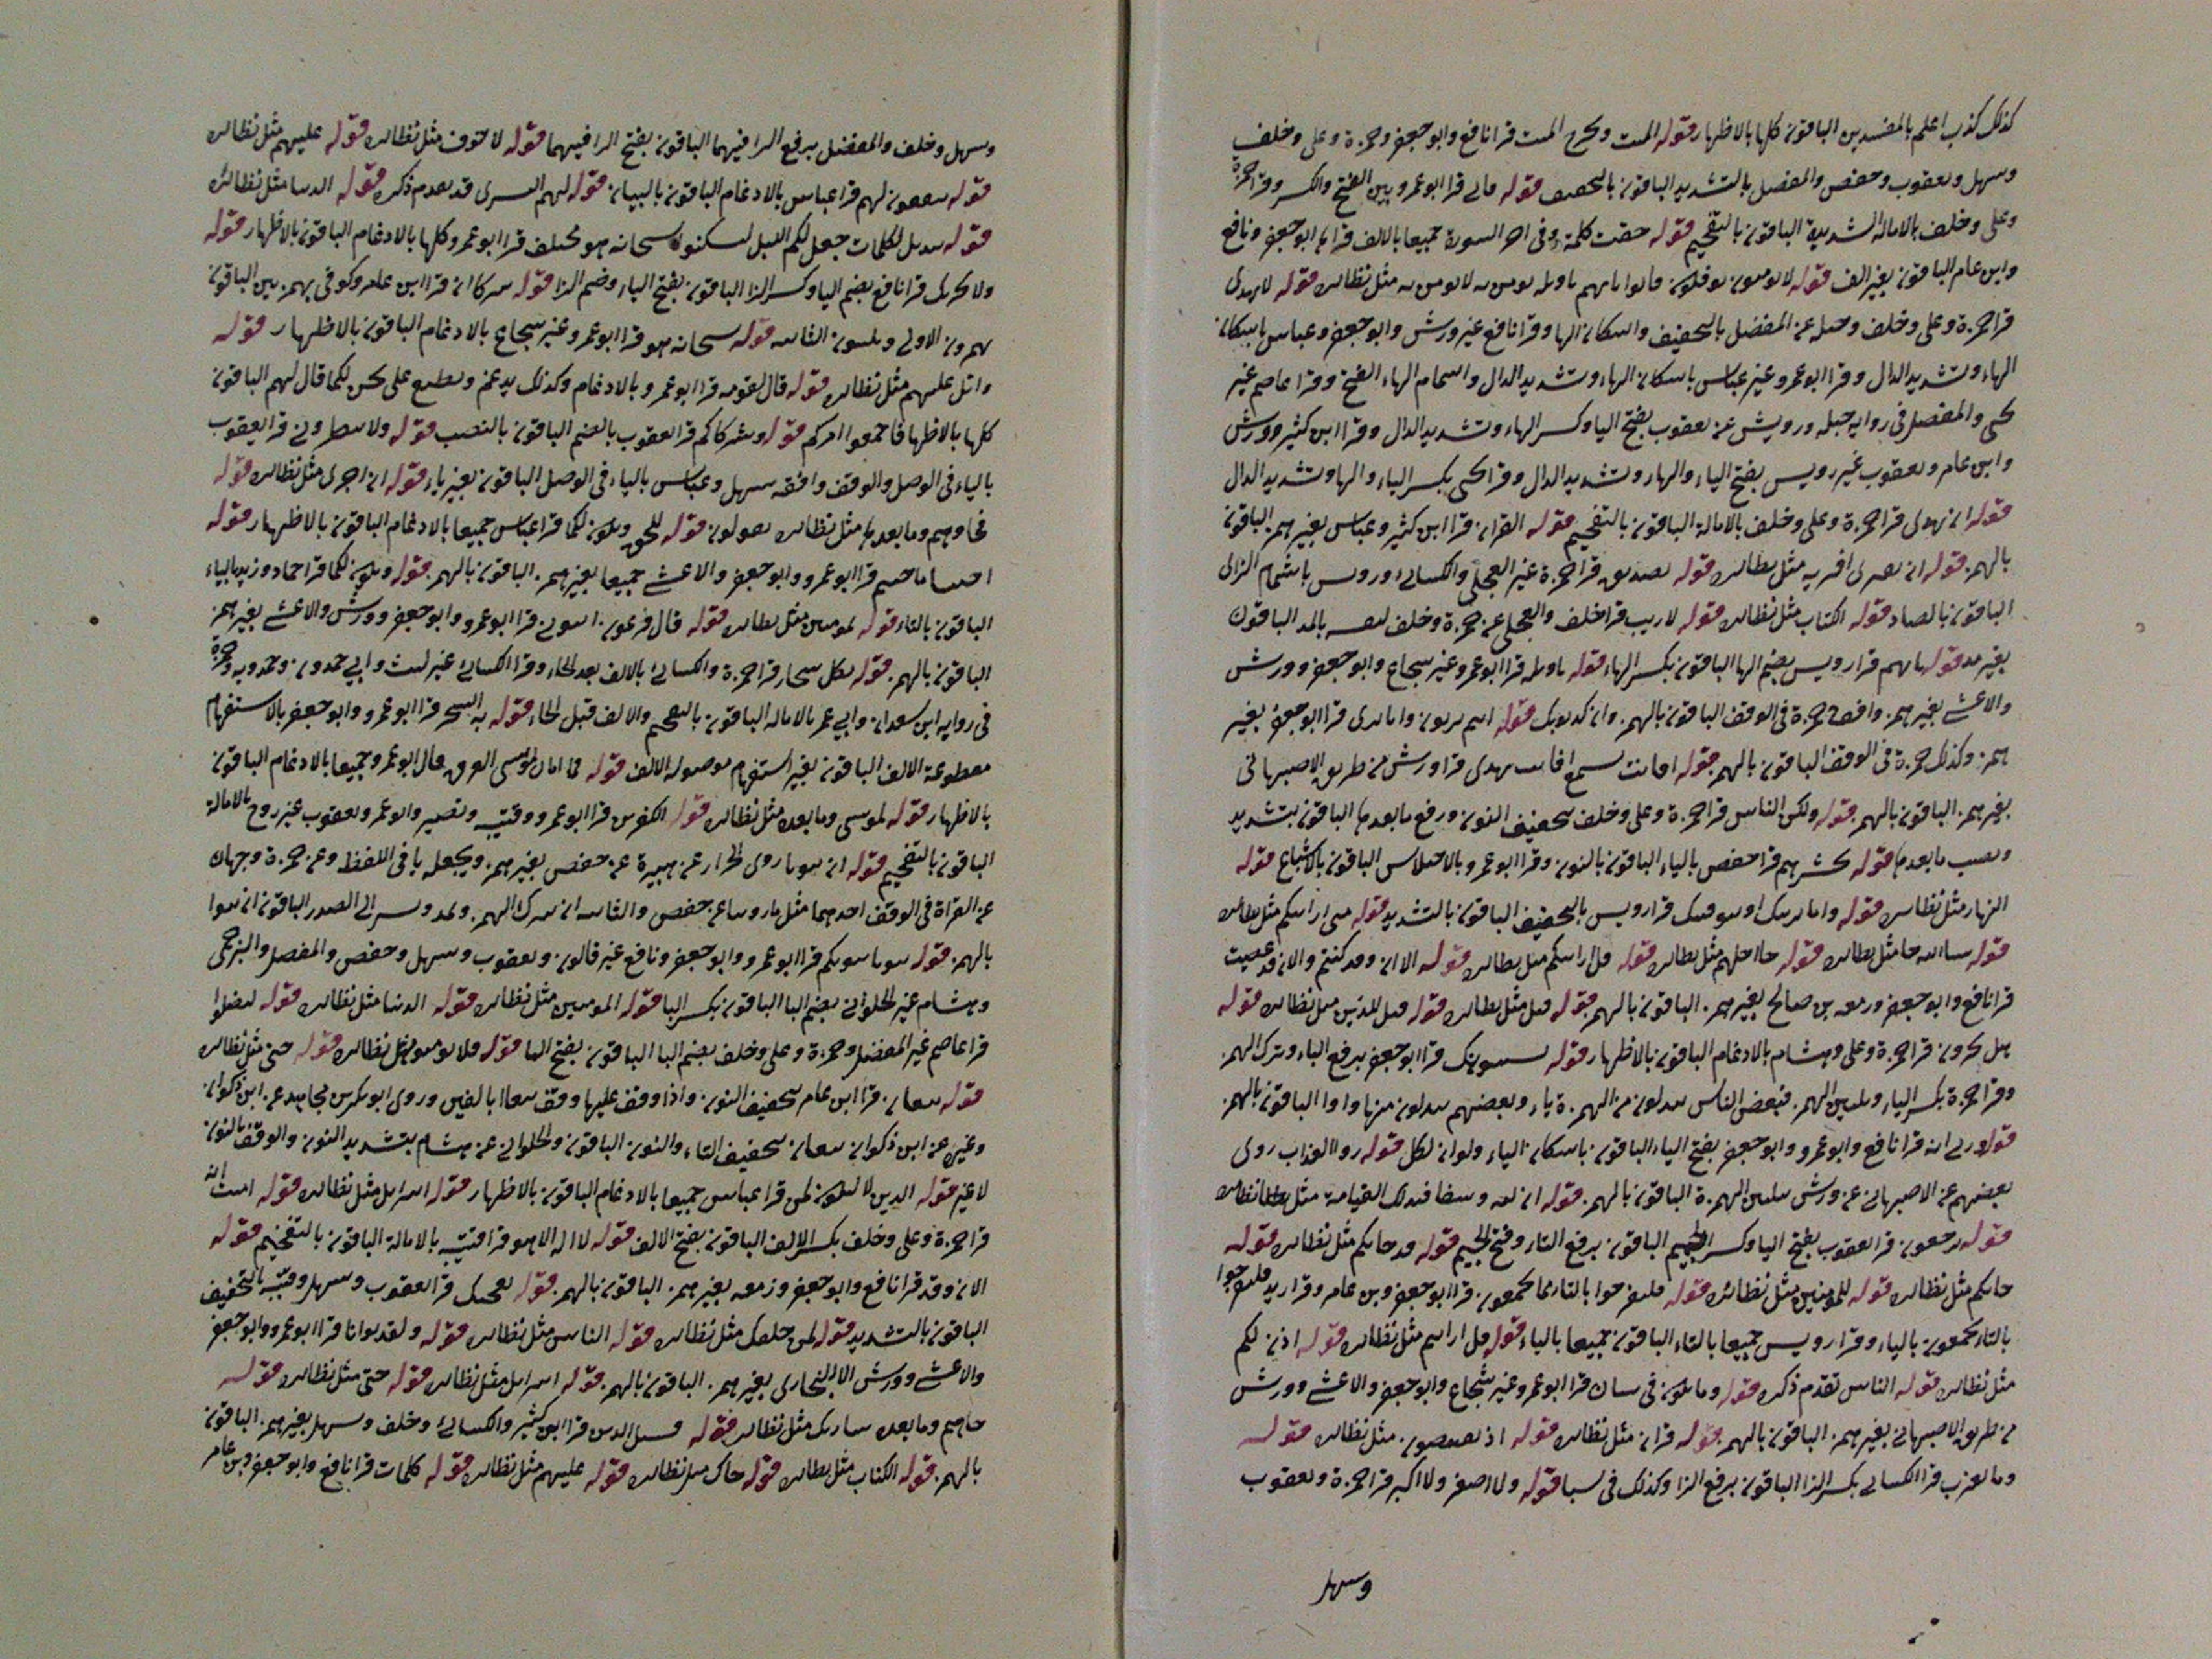 كذلك كذب اعلم بالمفسدين الباقون كلها بالاظهار قوله الميت ويخرج الميت قرا نافع وابو جعفر وحمزة وعلى وخلف
وسهل ويعقوب وحفص والمفضل بالتشديد الباقون بالتخفيف قوله فانى قرا ابو عمرو بين الفتح والكسر وقرا حمزة
وعلى وخلف بالامالة الشديدة الباقون بالتفخيم قوله حقت كلمة وفى اخر السورة جميعا بالالف قراها ابو جعفر ونافع
وابن عامر الباقون بغير الف قوله لا يومنون يوفكون مثل نظائره قوله لا يهدى
قرا حمزة وعلى وخلف عن المفضل بالتخفيف واسكان الها وقرا نافع غير ورش وابو جعفر وعباس باسكان
الهاء وتشديد الدال وقرا ابو عمرو غير عباس باسكان الهاء وتشديد الدال واشمام الهاء الفتح وقرا عاصم غير
يحيى والمفضل فى رواية جبله ورويس عن يعقوب بفتح اليا وكسر الهاء وتشديد الدال وقرا ابن كثير وورش
وابن عامر ويعقوب غير رويس بفتح الياء والهاء وتشديد الدال وقرا يحيى بكسر الياء والها وتشديد الدال
قوله ان يهدى قرا حمزة وعلى وخلف بالامالة الباقون بالتفخيم قوله القران قرا ابن كثير وعباس بغير همز الباقون
بالهمز قوله ان يفترى افتريه مثل نظائره قوله تصديق قرا حمزة غير العجلى والكسائى ورويس باشمام الزاى
الباقون بالصاد قوله الكتاب مثل نظائره قوله لا ريب قرا خلف والعجلى عن حمزة وخلف لنفسه بالمد الباقون
بغير مد قوله ياتهم قرا رويس بضم الها الباقون بكسر الهاء قوله تاويله قرا ابو عمرو غير شجاع وابو جعفر وورش
والاعشى بغير همز وافقهم حمزة فى الوقف الباقون بالهمز وان كذبوك قوله انتم بريون وانا برى قرا ابو جعفر بغير
همز وكذلك حمزة فى الوقف الباقون بالهمز قوله افانت تسمع افانت تهدى قرا ورش من طريق الاصبهانى
بغير همز الباقون بالهمز قوله ولكن الناس قرا حمزة وعلى وخلف بتخفيف النون ورفع ما بعدها الباقون بتشديد
ونصب ما بعدها قوله يحشرهم قرا حفص بالياء الباقون بالنون وقرا ابو عمرو بالاختلاس الباقون بالاشباع قوله
النهار مثل نظائره قوله واما نرينك او نتوفينك قرا رويس بالتخفيف الباقون بالتشديد قوله متى ارايتكم مثل نظائره
قوله جا اجلهم مثل نظائره قوله قل ارايتم مثل نظائره قوله الان وقد كنتم والان وقد عصيت
قرا نافع وابو جعفر وزمعه بن صالح بغير همز الباقون بالهمز قوله قيل مثل نظائره قوله قيل للذين مثل نظائره قوله
هل تجزون قرا حمزة وعلى وهشام بالادغام الباقون بالاظهار قوله يستنبونك قرا ابو جعفر برفع الباء وترك الهمز
وقرا حمزة بكسر الياء وتليين الهمز فبعض الناس يبدلون من الهمزة ياء وبعضهم يبدلون منها واوا الباقون بالهمز
قوله وربى انه قرا نافع وابو عمرو وابو جعفر بفتح الياء الباقون باسكان الياء ولو ان لكل قوله راوا العذاب روى
بعضهم عن الاصبهانى عن ورش بتليين الهمزة الباقون بالهمز قوله
قوله ترجعون قرا يعقوب بفتح اليا وكسر الجيم الباقون برفع التاء وفتح الجيم قوله قد جاتكم مثل نظائره قوله
جاتكم مثل نظائره قوله للمومنين مثل نظائره قوله فلتفرحوا بالتاء مما تجمعون قرا ابو جعفر وبن عامر وقرا زيد فلتفرحوا
بالتاء تجمعون بالياء وقرا رويس جميعا بالتاء الباقون جميعا بالياء قوله قل ارايتم مثل نظائره قوله اذن لكم
مثل نظائره قوله الناس تقدم ذكره قوله وما تكون فى شان قرا ابو عمرو غير شجاع وابو جعفر والاعشى وورش
من طريق الاصبهانى بغير همز الباقون بالهمز قوله قران مثل نظائره قوله اذ تفيضون مثل نظائره قوله
وما يعزب قرا الكسائى بكسر الزا الباقون برفع الزا وكذلك فى سبا قوله ولا اصغر ولا اكبر قرا حمزة ويعقوب
وسهل
وسهل وخلف والمفضل برفع الرا فيهما الباقون بفتح الرا فيهما قوله لا خوف مثل نظائره قوله عليهم مثل نظائره
قوله لهم قرا عباس بالادغام الباقون بالبيان قوله لهم البشرى قد تقدم ذكره قوله الدنيا مثل نظائره
قوله تبديل لكلمات جعل لكم الليل لتسكنوا سبحانه هو قرا ابو عمرو كلها بالادغام الباقون بالاظهار قوله
ولا يحزنك قرا نافع بضم اليا وكسر الزا الباقون بفتح الياء وضم الزا قوله شركا ان قرا ابن عامر وكوفى بهمزتين الباقون
بهمزون الاولى ويلينون الثانيه قوله سبحانه هو قرا ابو عمرو غير شجاع بالادغام الباقون بالاظهار قوله
واتل عليهم مثل نظائره قوله قال لقومه قرا ابو عمرو بالادغام وكذلك يدغم ونطبع على نحن لكما قال لهم الباقون
كلها بالاظهار فاجمعوا امركم قوله وشركاكم قرا يعقوب بالضم الباقون بالنصب قوله ولا تنظرونى قرا يعقوب
بالياء فى الوصل والوقف وافقه سهل وعباس بالياء فى الوصل الباقون بغير ياء قوله ان اجرى مثل نظائره قوله
فجاوهم وما بعدها مثل نظائره قوله للحق وتكون لكما قرا عباس جميعا بالادغام الباقون بالاظهار قوله
اجيتنا ما جيتم قرا ابو عمرو وابو جعفر والاعشى جميعا بغير همز الباقون بالهمز قوله وتكون لكما قرا حماد وزيد بالياء
الباقون بالتاء قوله بمومنين مثل نظائره قوله قال فرعون ايتونى قرا ابو عمرو وابو جعفر وورش والاعشى بغير همز
الباقون بالهمز قوله بكل سحار قرا حمزة والكسائى بالالف بعد الحاء وقرا الكسائى غير ليث وابى حمدون وحمدويه وحمزة
فى رواية ابن سعدان وابى عمر بالامالة الباقون بالتفخيم والالف قبل الحاء قوله به السحر قرا ابو عمرو وابو جعفر بالاستفهام
مقطوعة الالف الباقون بغير استفهام موصولة الالف قوله فما امن لموسى الغرق قال ابو عمرو جميعا بالادغام الباقون
بالاظهار قوله لموسى وما بعده مثل نظائره قوله الكفرين قرا ابو عمرو وقتيبه ونصير وابو عمر ويعقوب غير روح بالامالة
الباقون بالتفخيم قوله ان تبوا روى الخزاز عن هبيرة عن حفص بغير همز ويجعله يا فى اللفظ وعن حمزة وجهان
عن القراة فى الوقف احدهما مثل ما روينا عن حفص والثانيه ان يترك الهمز ويمد ويشير الى الصدر الباقون ان تبوا
بالهمز قوله بيوتا بيوتكم قرا ابو عمرو وابو جعفر ونافع غير قالون ويعقوب وسهل وحفص والمفضل والبرجمى
وهشام غير الحلوانى بضم البا الباقون بكسر البا قوله المومنين مثل نظائره قوله الدنيا مثل نظائره قوله ليضلوا
قرا عاصم غير المفضل وحمزة وعلى وخلف بضم اليا الباقون بفتح اليا قوله فلا يومنوا مثل نظائره قوله حتى مثل نظائره
قوله تتبعان قرا ابن عامر بتخفيف النون واذا وقف عليها وقف تتبعا بالفين وروى ابو بكر بن مجاهد عن ابن ذكوان
وغيره عن ابن ذكوان تتبعان بتخفيف التاء والنون الباقون والحلوانى عن هشام بتشديد النون والوقف بالنون
لا غير قوله الذين لا يعلمون قرا عباس جميعا بالادغام الباقون بالاظهار قوله اسرايل مثل نظائره قوله امنت انه
قرا حمزة وعلى وخلف بكسر الالف الباقون بفتح الالف قوله لا اله الا هو قرا قتيبه بالامالة الباقون بالتفخيم قوله
الان وقد قرا نافع وابو جعفر وزمعه بغير همز الباقون بالهمز قوله ننجيك قرا يعقوب وسهل وقتيبه بالتخفيف
الباقون بالتشديد قوله لمن خلفك مثل نظائره قوله الناس مثل نظائره قوله ولقد بوانا قرا ابو عمرو وابو جعفر
والاعشى وورش الا البخارى بغير همز الباقون بالهمز قوله اسرايل مثل نظائره قوله حتى مثل نظائره قوله
جاهم وما بعده مثل نظائره قوله فسل الذين قرا ابن كثير والكسائى وخلف وسهل بغير همز الباقون
بالهمز قوله الكتاب مثل نظائره قوله جاك مثل نظائره قوله عليهم مثل نظائره قوله كلمات قرا نافع وابو جعفر وبن عامر